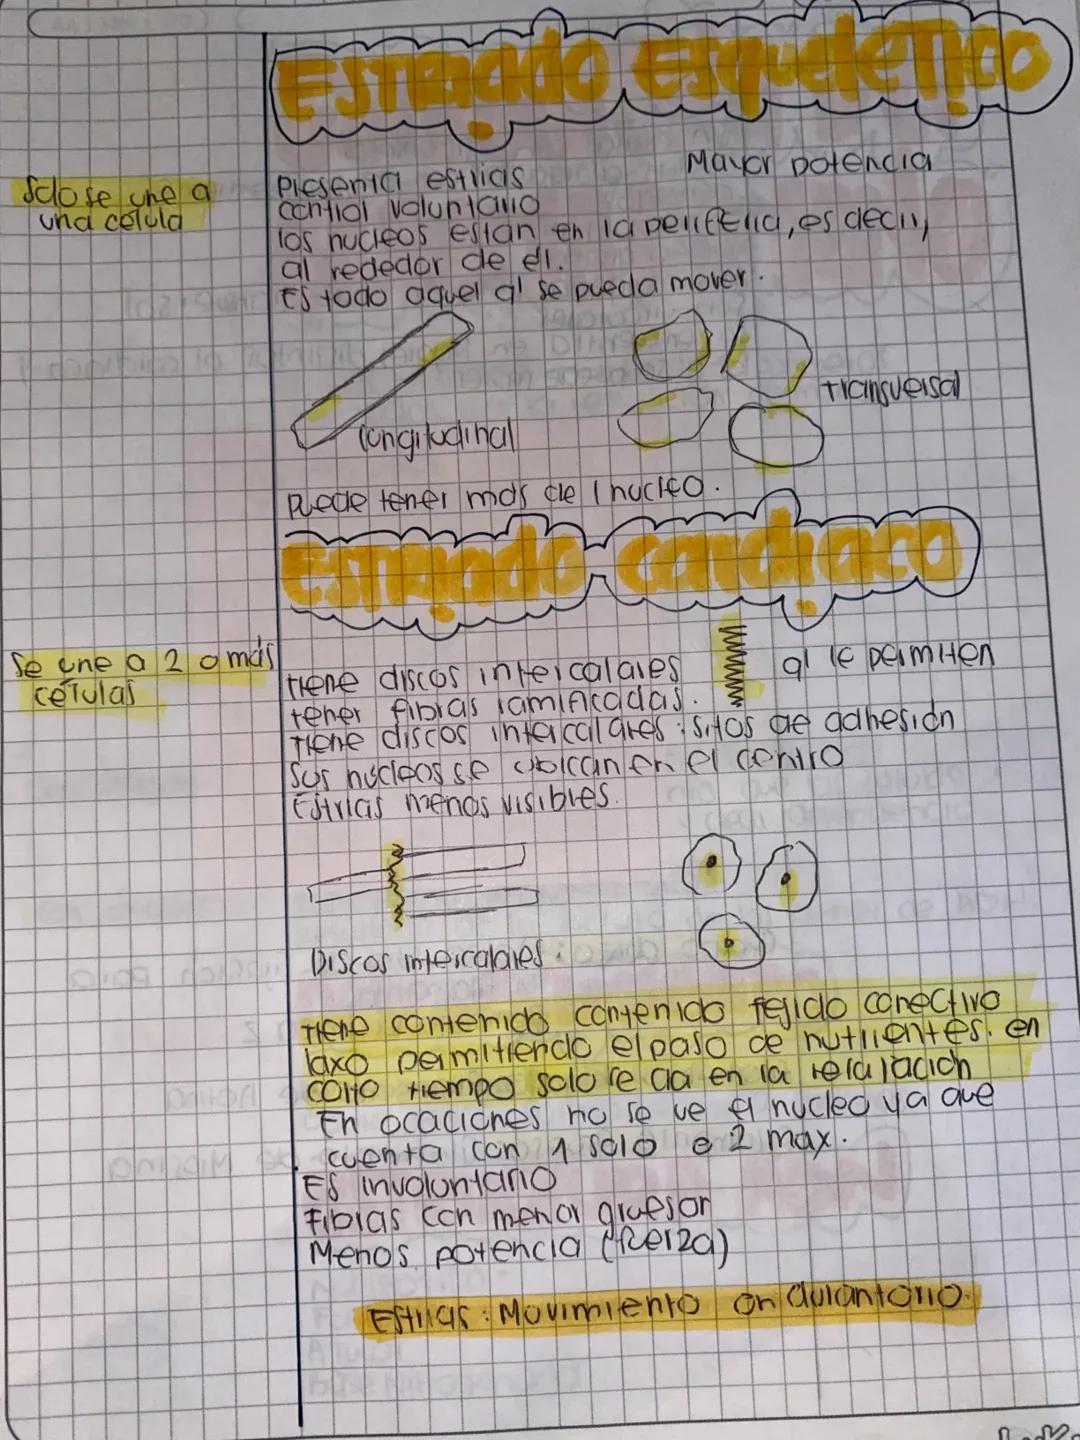 Estriado Esquelético
Solo se une a
una celula
Mayor potencia
Presenta estrias
control voluntario
los nucleos estan en la periferia, es decir,
al rededor de el.
Es todo aquel q' se pueda mover.
longitudinal
transversal
Puede tener más de 1 nucleo.
Estriado cardiaco
Se une a 2 o más
células
tiene discos intercalares
q' le permiten
tener fibras ramificadas.
tiene discos intercalares : sitos de adhesión
Sus núcleos se ubican en el centro
Estrias menos visibles.
Discos intercalares.
tiene contenido contenido tejido conectivo
laxo permitiendo el paso de nutrientes. en
corto tiempo solo se da en la relajación
En ocaciones no se ve el nucleo ya que
cuenta con 1 solo o 2 max.
Es involuntario
Fibras con menor gruesor
Menos potencia (fuerza)
Estrias : Movimiento